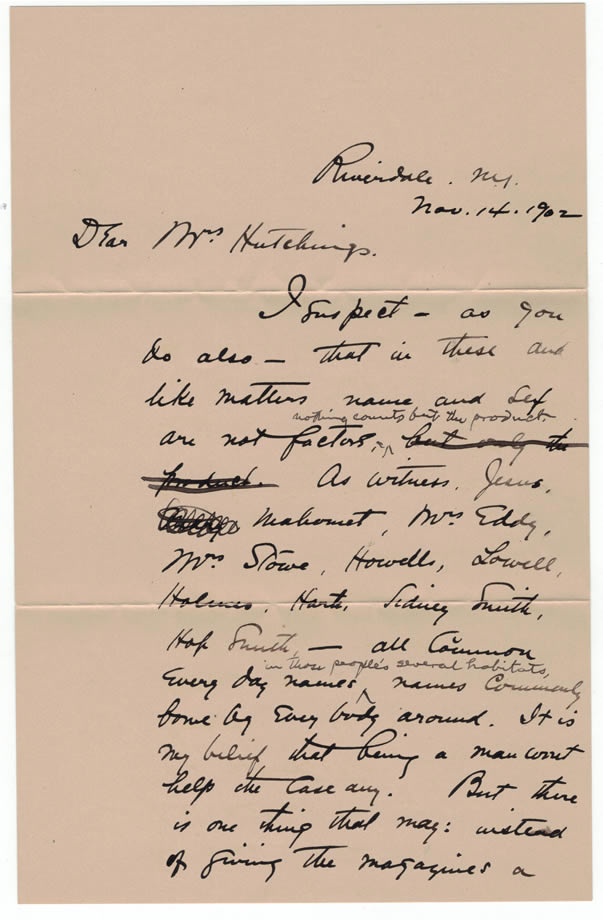 Riverdale. N.Y.
Nov. 14. 1902
Dear Mrs Hutchings.
I suspect — as you
do also — that in these and
like matters name and sex
nothing counts but the product.
are not factors, but only the
product. As witness, Jesus,
Mahomet, Mrs Eddy,
Mrs Stowe, Howells, Lowell,
Holmes, Harte, Sidney Smith,
Hop Smith, — all common
in those people's several habitats,
every day names, names commonly
borne by every body around. It is
my belief that being a man won't
help the case any. But there
is one thing that may: instead
of giving the magazines a